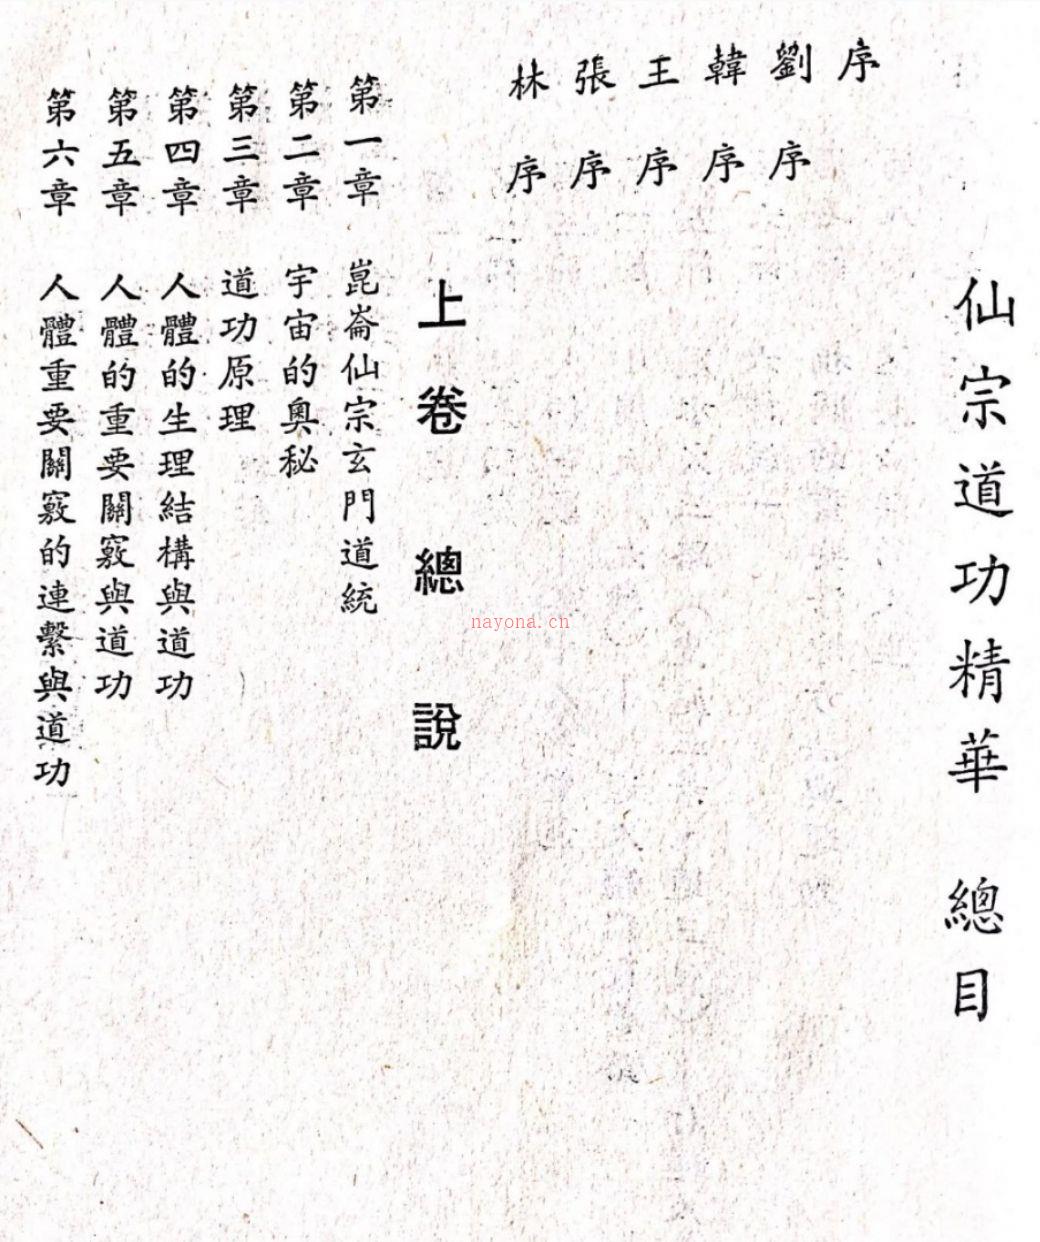 仙宗道功精華 總目
序
劉序
韓序
王序
張序
林序
上卷 總說
第一章 崑崙仙宗玄門道統
第二章 宇宙的奧秘
第三章 道功原理
第四章 人體的生理結構與道功
第五章 人體的重要關竅與道功
第六章 人體重要關竅的連繫與道功
nayona.cn